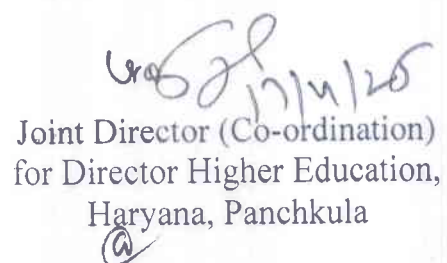 Joint Director (Co-ordination)
for Director Higher Education,
Haryana, Panchkula
@